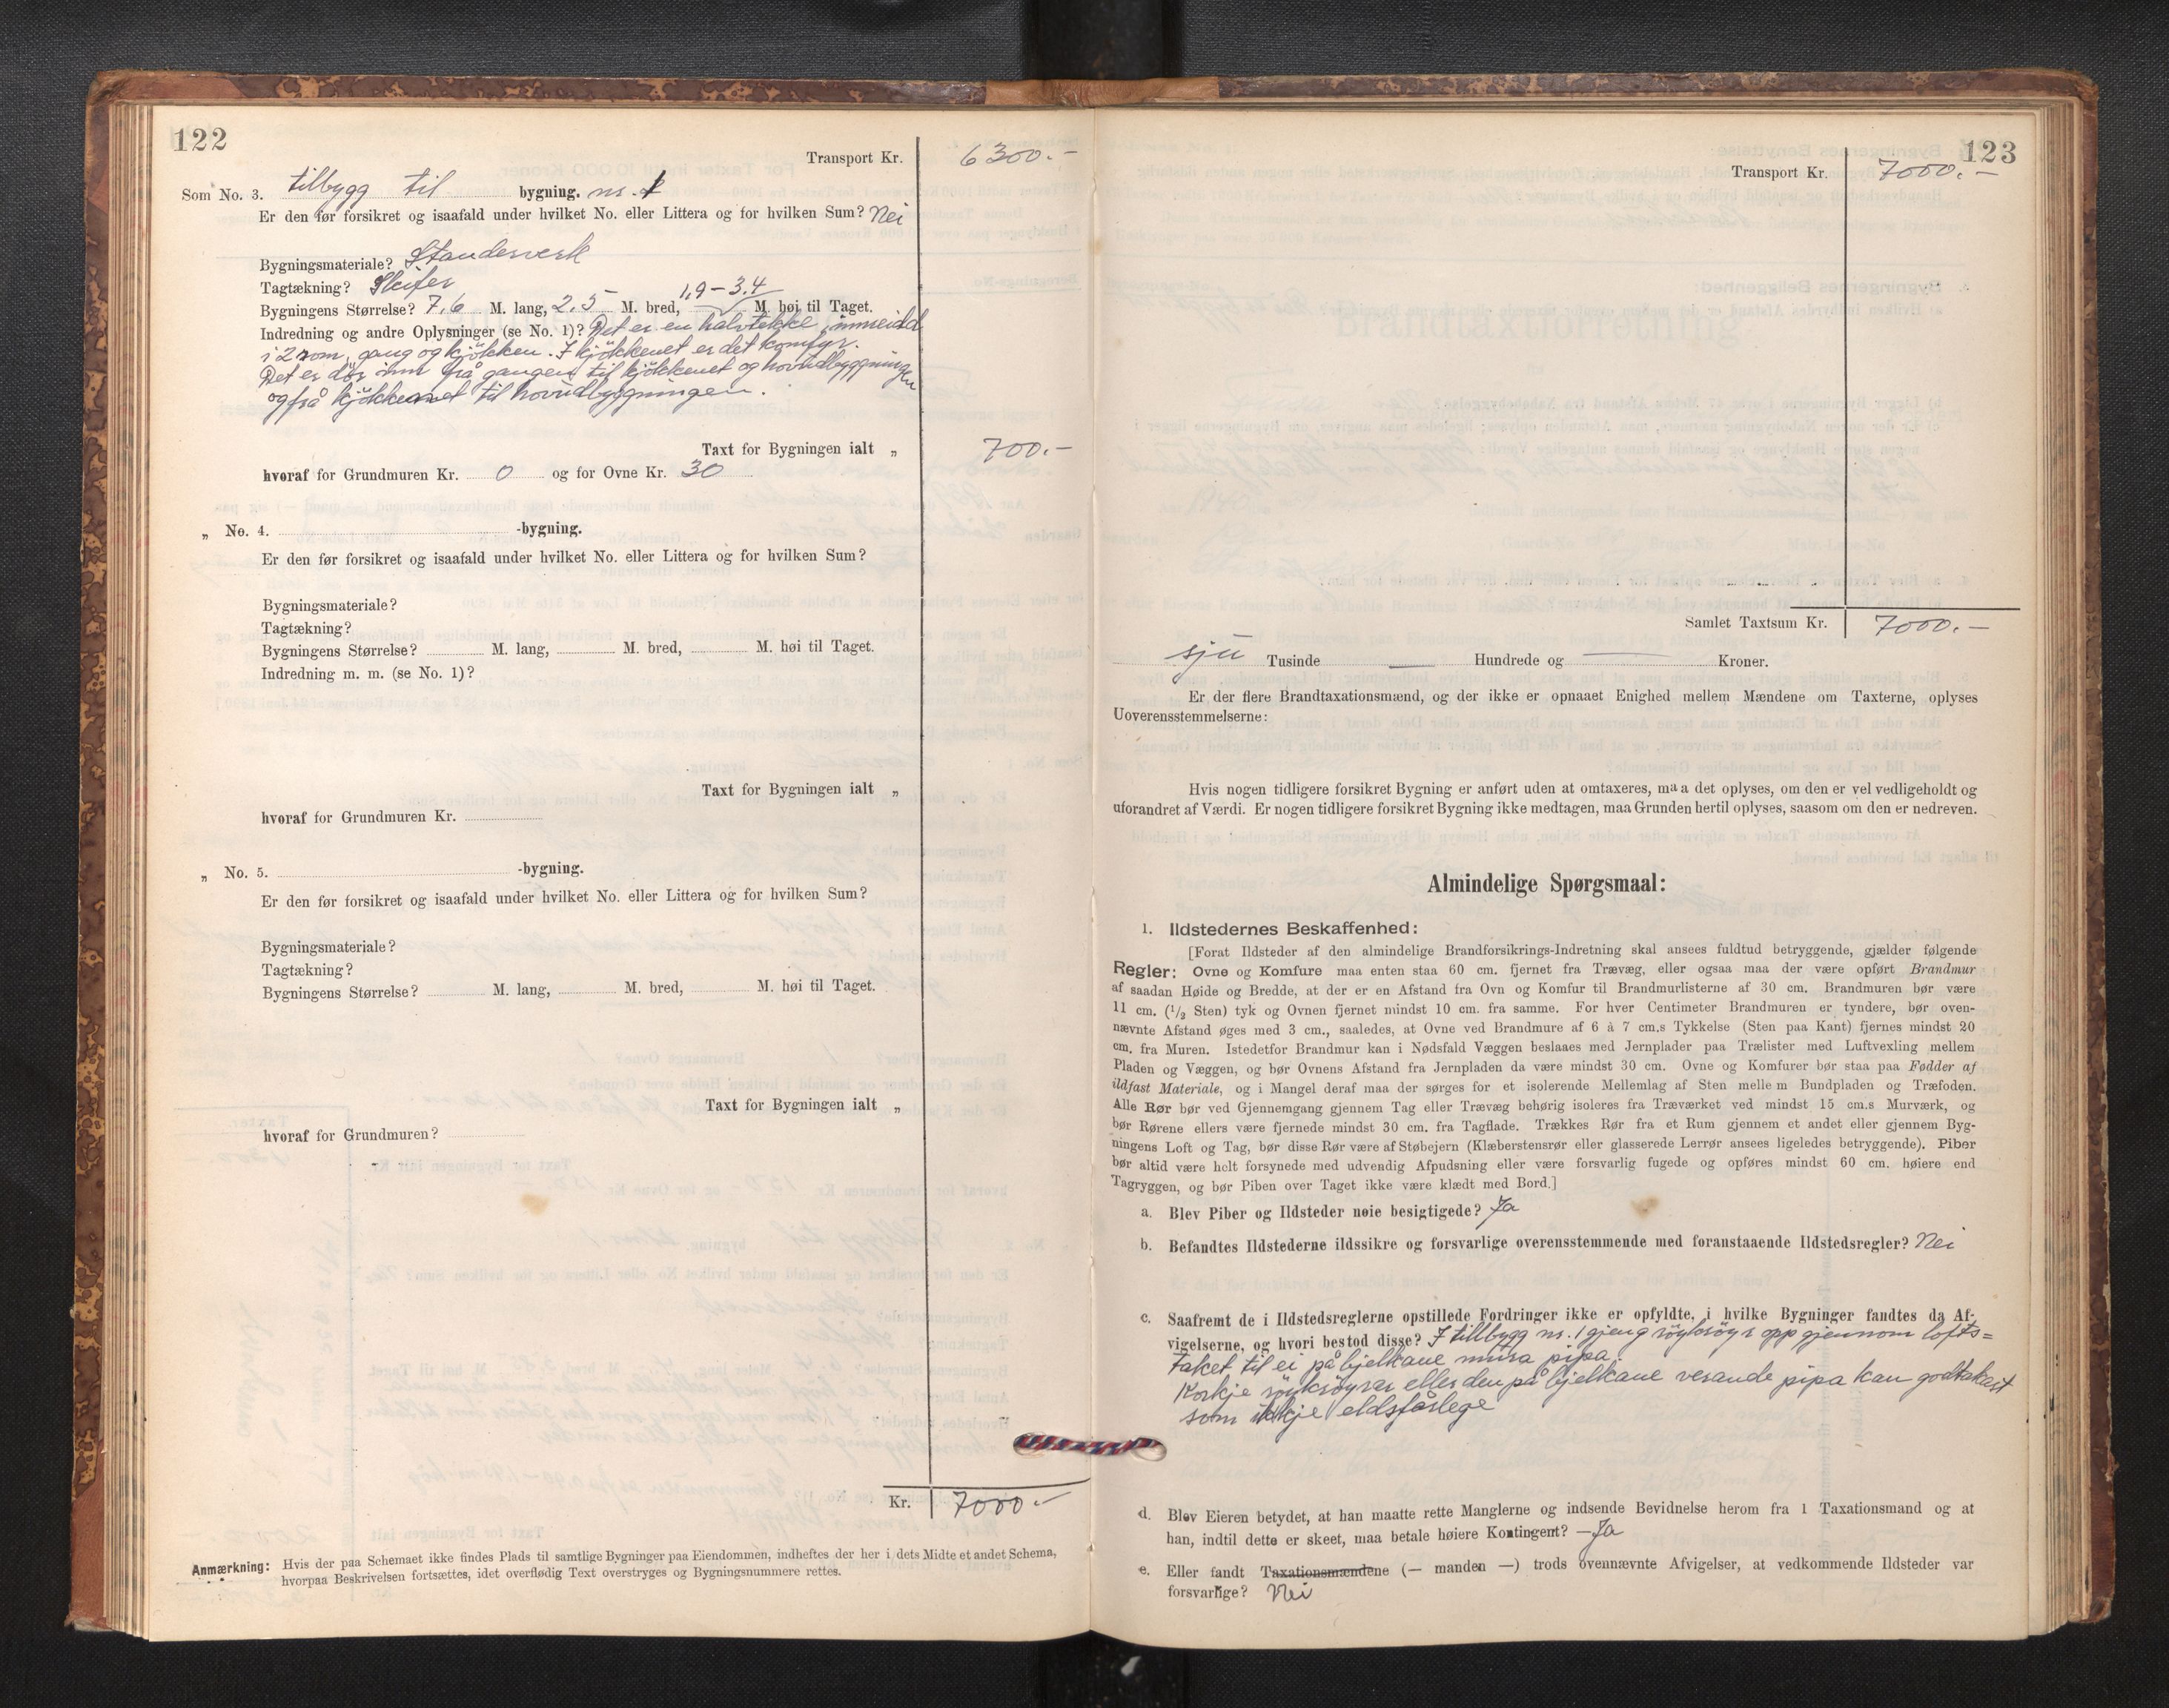 122
Transport Kr. 6300.-
Som No. 3. tilbygg til bygning. nr. 1
Er den før forsikret og isaafald under hvilket No. eller Littera og for hvilken Sum? Nei
Bygningsmateriale? Standerverk
Tagtækning? Skifer
Bygningens Størrelse? 7,6 M. lang, 2,5 M. bred, 1,9-3,4 M. høi til Taget.
Indredning og andre Oplysninger (se No. 1)? Det er en halvtekke, innreidd
i 2 rom, gang og kjökken. I kjökkenet er det komfyr.
Det er dör inn frå gangen til kjökkenet og hovudbyggningen
og frå kjökkenet til hovudbyggningen.
Taxt for Bygningen ialt „ 700.-
hvoraf for Grundmuren Kr. 0 og for Ovne Kr. 30
„ No. 4. -bygning.
Er den før forsikret og isaafald under hvilket No. eller Littera og for hvilken Sum?
Bygningsmateriale?
Tagtækning?
Bygningens Størrelse? M. lang, M. bred, M. høi til Taget.
Indredning m. m. (se No. 1)?
Taxt for Bygningen ialt „
hvoraf for Grundmuren Kr.
„ No. 5. -bygning.
Er den før forsikret og isaafald under hvilket No. eller Littera og for hvilken Sum?
Bygningsmateriale?
Tagtækning?
Bygningens Størrelse? M. lang, M. bred, M. høi til Taget.
Taxt for Bygningen ialt „
hvoraf for Grundmuren?
Kr. 7000.-
Anmærkning: Hvis der paa Schemaet ikke findes Plads til samtlige Bygninger paa Eiendommen, indheftes der her i dets Midte et andet Schema,
hvorpaa Beskrivelsen fortsættes, idet overflødig Text overstryges og Bygningsnummere rettes.
123
Transport Kr. 7000.-
Samlet Taxtsum Kr. 7000.-
sju Tusinde — Hundrede og — Kroner.
Er der flere Brandtaxationsmænd, og der ikke er opnaaet Enighed mellem Mændene om Taxterne, oplyses
Uoverensstemmelserne:
Hvis nogen tidligere forsikret Bygning er anført uden at omtaxeres, maa det oplyses, om den er vel vedligeholdt og
uforandret af Værdi. Er nogen tidligere forsikret Bygning ikke medtagen, maa Grunden hertil oplyses, saasom om den er nedreven.
Almindelige Spørgsmaal:
1. Ildstedernes Beskaffenhed:
[Forat Ildsteder af den almindelige Brandforsikrings-Indretning skal ansees fuldtud betryggende, gjælder følgende
Regler: Ovne og Komfure maa enten staa 60 cm. fjernet fra Trævæg, eller ogsaa maa der være opført Brandmur
af saadan Høide og Bredde, at der er en Afstand fra Ovn og Komfur til Brandmurlisterne af 30 cm. Brandmuren bør være
11 cm. (1/2 Sten) tyk og Ovnen fjernet mindst 10 cm. fra samme. For hver Centimeter Brandmuren er tyndere, bør oven-
nævnte Afstand øges med 3 cm., saaledes, at Ovne ved Brandmure af 6 à 7 cm.s Tykkelse (Sten paa Kant) fjernes mindst 20
cm. fra Muren. Istedetfor Brandmur kan i Nødsfald Væggen beslaaes med Jernplader paa Trælister med Luftvexling mellem
Pladen og Væggen, og bør Ovnens Afstand fra Jernpladen da være mindst 30 cm. Ovne og Komfurer bør staa paa Fødder af
ildfast Materiale, og i Mangel deraf maa der sørges for et isolerende Mellemlag af Sten mellem Bundpladen og Træfoden.
Alle Rør bør ved Gjennemgang gjennem Tag eller Trævæg behørig isoleres fra Træværket ved mindst 15 cm.s Murværk, og
bør Rørene ellers være fjernede mindst 30 cm. fra Tagflade. Trækkes Rør fra et Rum gjennem et andet eller gjennem Byg-
ningens Loft og Tag, bør disse Rør være af Støbejern (Klæberstensrør eller glasserede Lerrør ansees ligeledes betryggende). Piber
bør altid være helt forsynede med udvendig Afpudsning eller være forsvarlig fugede og opføres mindst 60 cm. høiere end
Tagryggen, og bør Piben over Taget ikke være klædt med Bord.]
a. Blev Piber og Ildsteder nøie besigtigede? Ja
b. Befandtes Ildstederne ildssikre og forsvarlige overensstemmende med foranstaaende Ildstedsregler? Nei
c. Saafremt de i Ildstedsreglerne opstillede Fordringer ikke er opfyldte, i hvilke Bygninger fandtes da Af-
vigelserne, og hvori bestod disse? I tillbygg nr. 1 gjeng röykröyr opp gjennom lofts=
taket til ei på bjelkane mura pipa.
Korkje röykröyrar eller den på bjelkane verande pipa kan godtakast
som ikkje eldsfårlege
d. Blev Eieren betydet, at han maatte rette Manglerne og indsende Bevidnelse herom fra 1 Taxationsmand og at
han, indtil dette er skeet, maa betale høiere Kontingent? — Ja
e. Eller fandt Taxationsmændene (— manden —) trods ovennævnte Afvigelser, at vedkommende Ildsteder var
forsvarlige? Nei